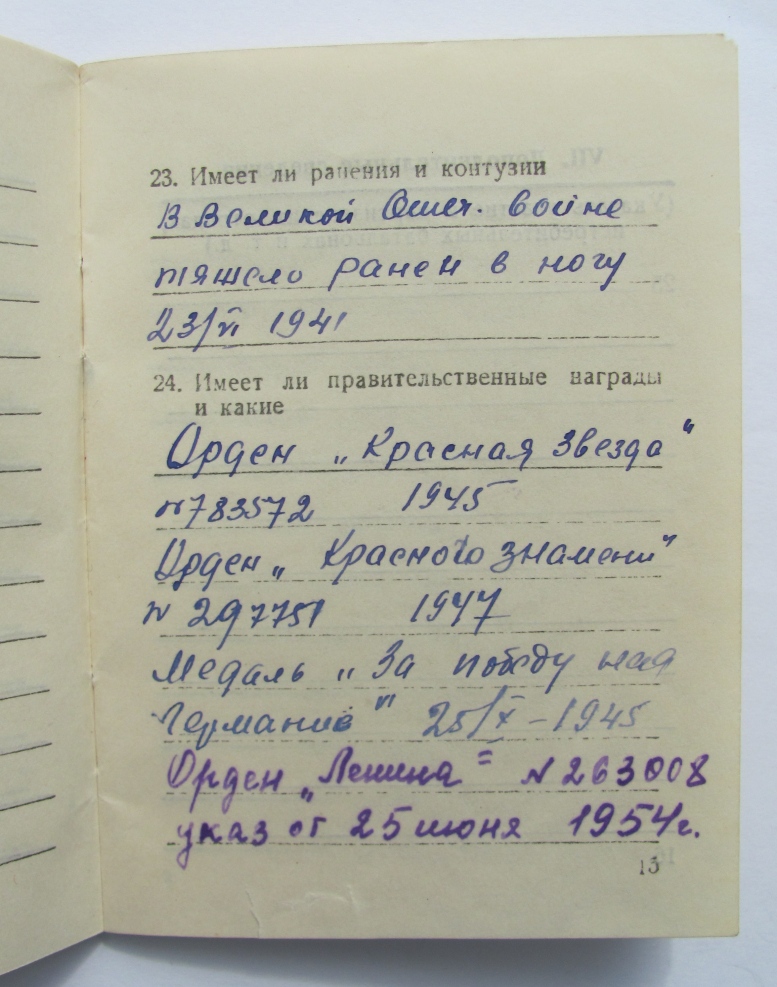 23. Имеет ли ранения и контузии
В Великой Отеч. войне
тяжело ранен в ногу
23/VI 1941
24. Имеет ли правительственные награды
и какие
Орден „Красная Звезда"
№783572 1945
Орден „Красного знамени"
№ 297751 1947
Медаль „За победу над
Германией" 25/X-1945
Орден „Ленина" № 263008
указ от 25 июня 1954г.
13